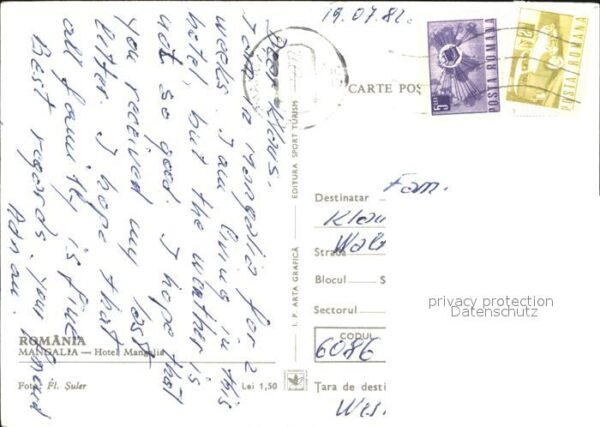 19.07.82.
Dear Klaus.
I am in Mangalia for 2
weeks. I am living in this
hotel, but the weather is
not so good. I hope that
you received my last
letter. I hope that
all family is fine
Best regards, your friend
Adnan.
ROMÂNIA
MANGALIA — Hotel Mangalia
Foto: Fl. Șuler
Lei 1,50
I. P. ARTA GRAFICĂ — EDITURA SPORT TURISM
CARTE POȘ
POSTA ROMANA
5 LEI
POSTA ROMANA
2L
Destinatar Fam.
Klau
Strada Wal
Blocul S
Sectorul
CODUL
6086
Țara de desti
Wes
privacy protection
Datenschutz